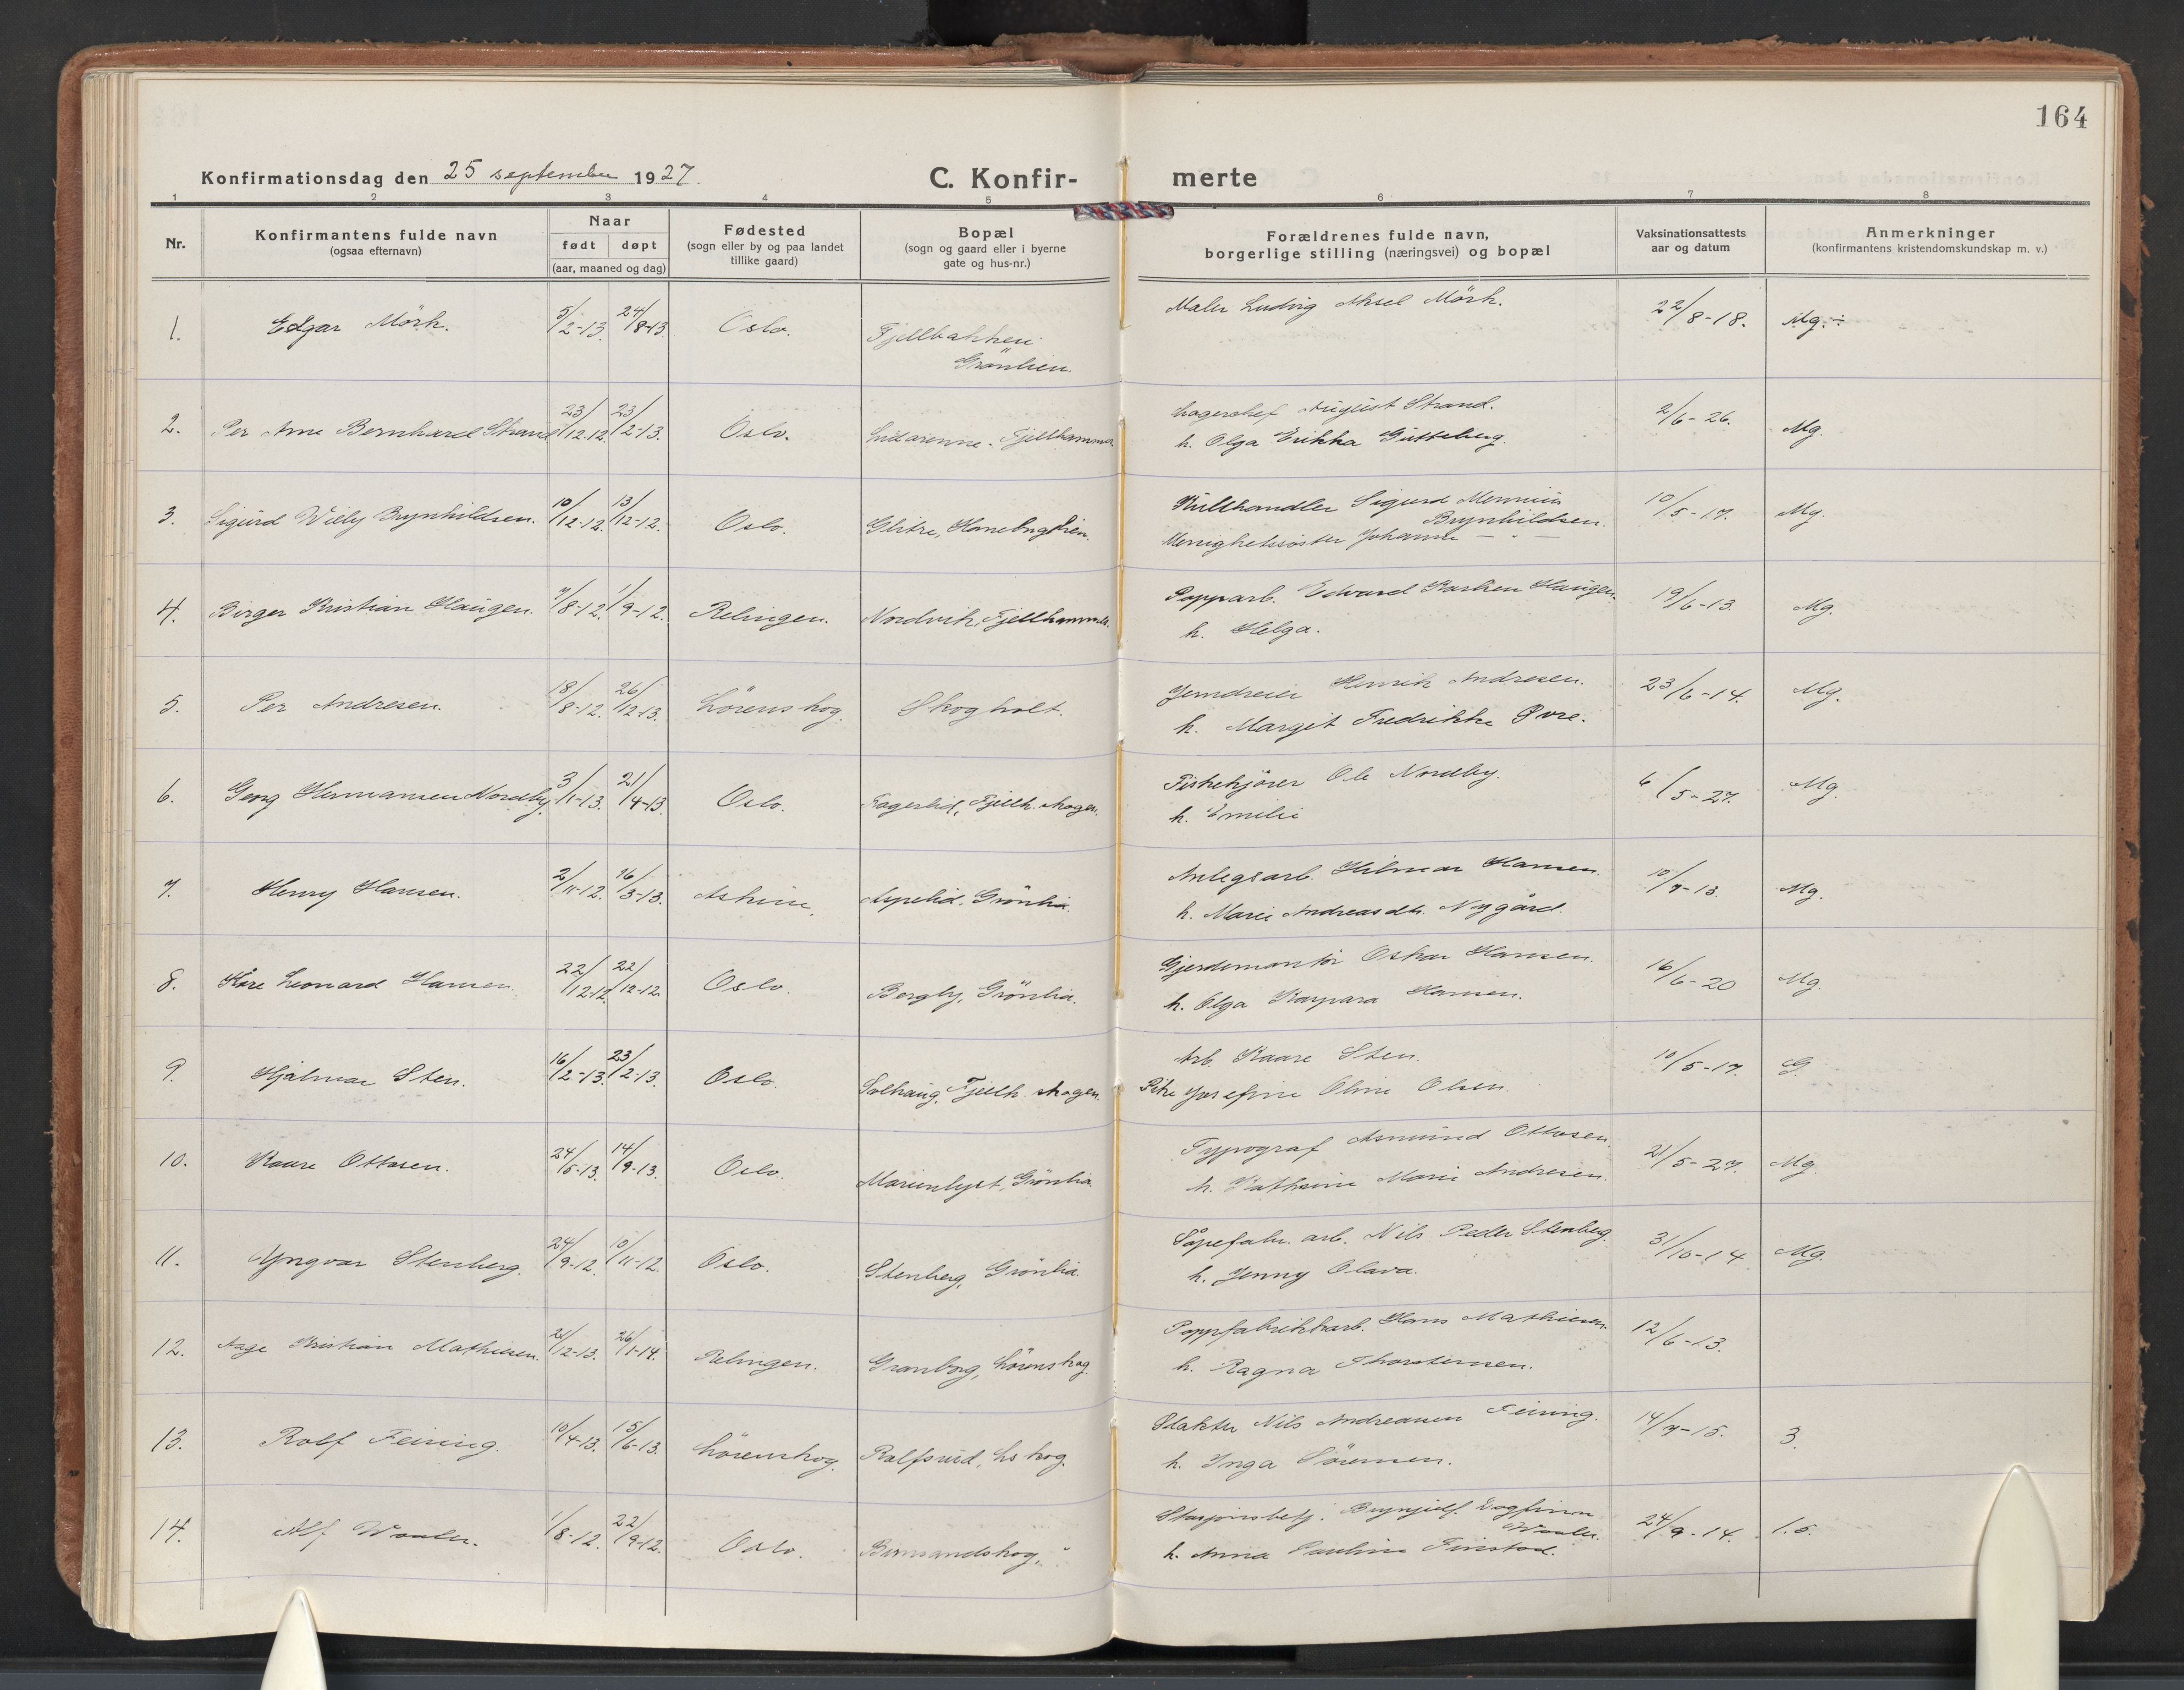 164
Konfirmationsdag den 25 september 1927.
C. Konfir- merte
1 2 3 4 5 6 7 8
Nr.
Konfirmantens fulde navn
(ogsaa efternavn)
Naar
født døpt
(aar, maaned og dag)
Fødested
(sogn eller by og paa landet
tillike gaard)
Bopæl
(sogn og gaard eller i byerne
gate og hus-nr.)
Forældrenes fulde navn,
borgerlige stilling (næringsvei) og bopæl
Vaksinationsattests
aar og datum
Anmerkninger
(konfirmantens kristendomskundskap m. v.)
1. Edgar Mörk. 5/2-13. 24/8-13. Oslo. Fjellbakken Grönlien. Maler Ludvig Aksel Mörk. 22/8-18. Mg. ÷
2. Per Arne Bernhard Strand 23/12-12. 23/2-13. Oslo. Fjellhammer Lagerchef August Strand. 2/6-26. Mg.
h. Olga Erikka Gutteberg.
3. Sigurd Willy Brynhildsen. 10/12-12. 13/12-12. Oslo. Glitre, Haneborglien. Kullhandler Sigurd 10/5-17. Mg.
Brynhildsen.
Menighetssöster Johanne — " —
4. Birger Kristian Haugen. 7/8-12. 1/9-12. Relingen. Nordvik, Fjellhammer. Papparb. Edvard Karlsen Haugen. 19/6-13. Mg.
h. Helga.
5. Per Andresen. 18/8-12. 26/12-13. Lörenskog. Skogholt. Jerndreier Henrik Andresen. 23/6-14. Mg.
h. Margit Fredrikke Øvre.
6. Georg Hermansen Nordby. 3/1-13. 21/4-13. Oslo. Fagerlid, Fjellh. skogen. Fiskekjörer Ole Nordby. 6/5-27. Mg.
h. Emilie
7. Henry Hansen. 2/11-12. 16/3-13. Askim. Aspelid, Grönlia. Anlegsarb. Hilmar Hansen. 10/7-13. Mg.
h. Marie Andreasdtr. Nygård.
8. Kåre Leonard Hansen. 22/12-12. 22/12-12. Oslo. Bergly, Grönlia. Gjerdemontör Oskar Hansen. 16/6-20 Mg.
h. Olga Kaspara Hansen.
9. Hjalmar Sten. 16/2-13. 23/2-13. Oslo. Solhaug, Fjellh. skogen. Arb. Kaare Sten. 10/5-17. G.
Pike Josefine Oline Olsen.
10. Kaare Ottosen. 24/5-13. 14/9-13. Oslo. Marienlyst, Grönlia. Typograf Asmund Ottosen. 21/5-27. Mg.
h. Kathrine Marie Andresen.
11. Yngvar Stenberg. 24/9-12. 10/11-12. Oslo. Stenberg, Grönlia. Såpefabr. arb. Nils Peder Stenberg. 31/10-14 Mg.
h. Jenny Olava.
12. Aage Kristian Mathiesen. 21/12-13. 26/1-14. Relingen. Granborg, Lörenskog. Pappfabrikkarb. Hans Mathiesen. 12/6-13.
h. Ragna Thorstensen.
13. Rolf Feiring. 10/4-13. 15/6-13. Lörenskog. Rolfsrud, Ls kog. Slakter Nils Andreassen Feiring. 14/7-15. 3.
h. Inga Sörensen.
14. Alf Waaler. 1/8-12. 22/9-12. Oslo. Brynjulf Dagfinn 24/9-14. 1.5.
Waaler.
h. Anna Pauline Finstad.